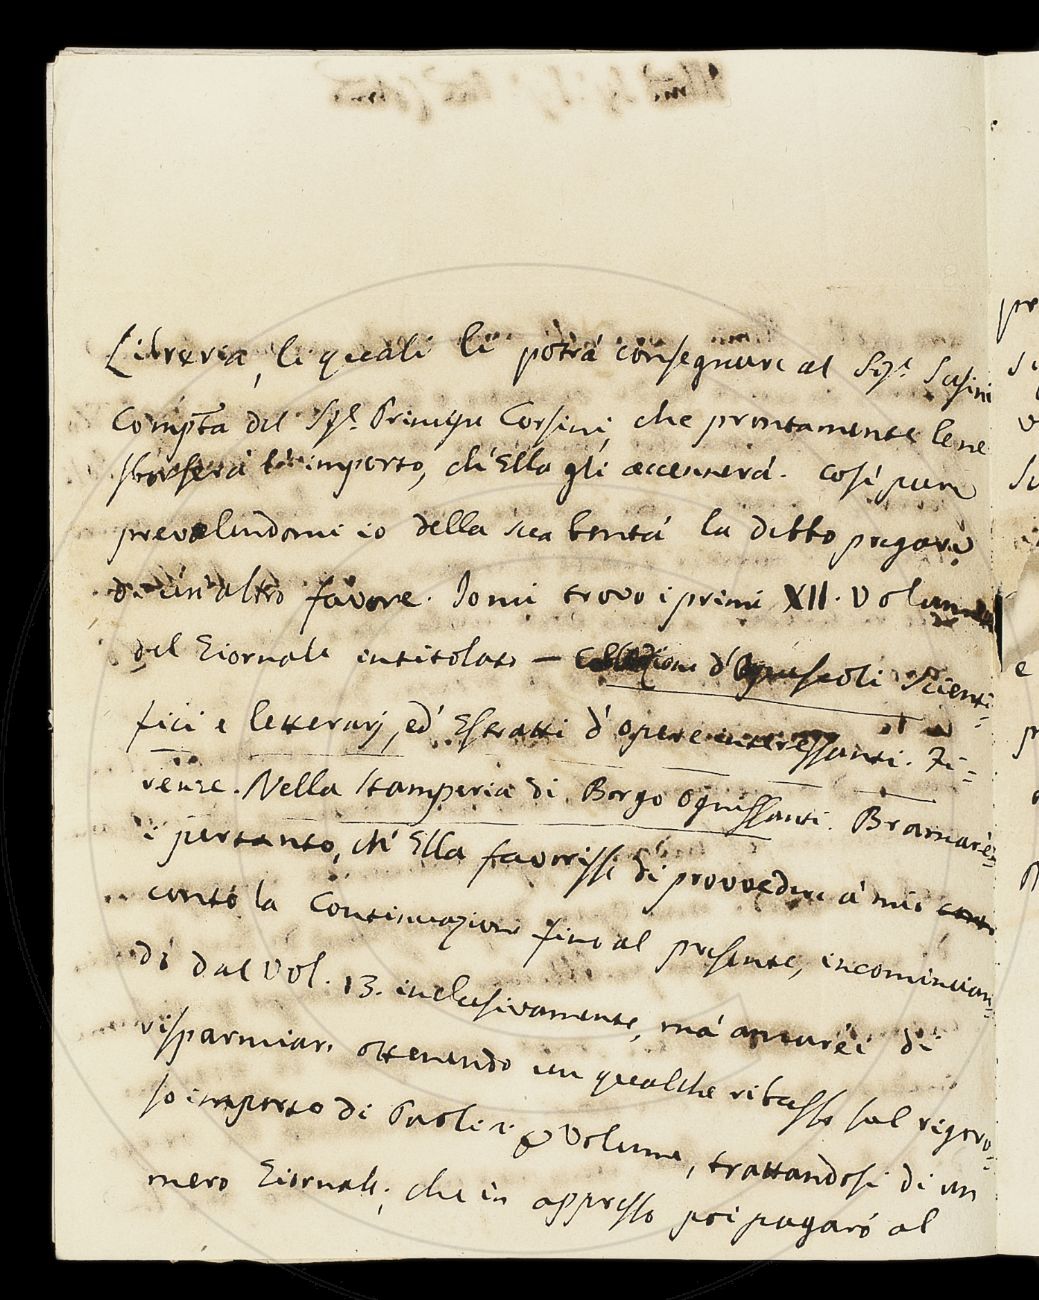 Libreria, li quali li potrà consegnare al Sigr. Sasini
Compta. del Sigr. Principe Corsini, che prontamente lene
sborserà l'importo, ch'Ella gli accennerà. Così pure
prevalendomi io della sua bontà la debbo pregare
di un'altro favore. Io mi trovo i primi XII. Volumi
del Giornale intitolato — Collezione d'Opuscoli Scienti=
fici e letterarj, ed' Estratti d'opere interessanti. Fi=
renze. Nella Stamperia di Borgo Ognissanti. Bramarè=
i pertanto, ch'Ella favorisse di provvedere à mio
contò la Continuazione fino al presente, incomincian=
do dal Vol. 13. inclusivamente, mà amarèi di
risparmiare ottenendo un qualche ribasso sul rigoro=
so importo di Paoli Volume, trattandosi di un
mero Giornale; che in appresso poi pagarò al
pr
e